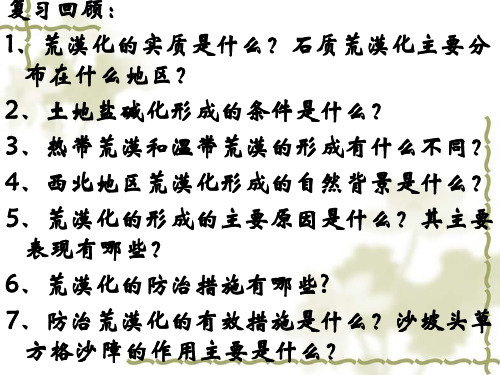 复习回顾：
1、荒漠化的实质是什么？石质荒漠化主要分
布在什么地区？
2、土地盐碱化形成的条件是什么？
3、热带荒漠和温带荒漠的形成有什么不同？
4、西北地区荒漠化形成的自然背景是什么？
5、荒漠化的形成的主要原因是什么？其主要
表现有哪些？
6、荒漠化的防治措施有哪些？
7、防治荒漠化的有效措施是什么？沙坡头草
方格沙障的作用主要是什么？